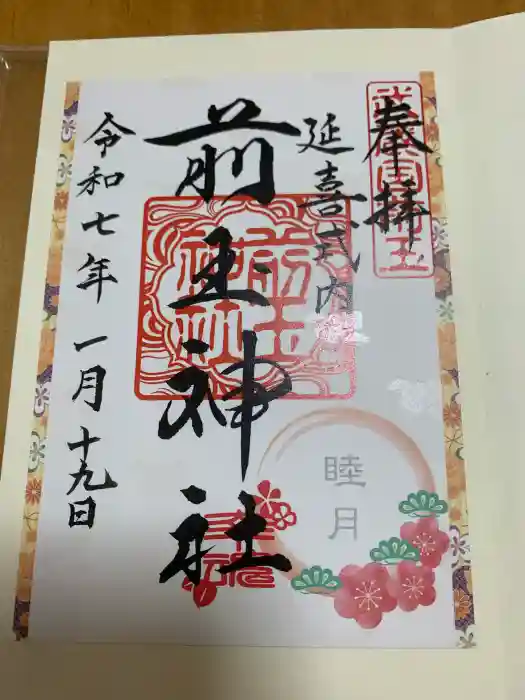 奉拝
延喜式内社
前玉神社
前玉
神社
令和七年一月十九日
睦月